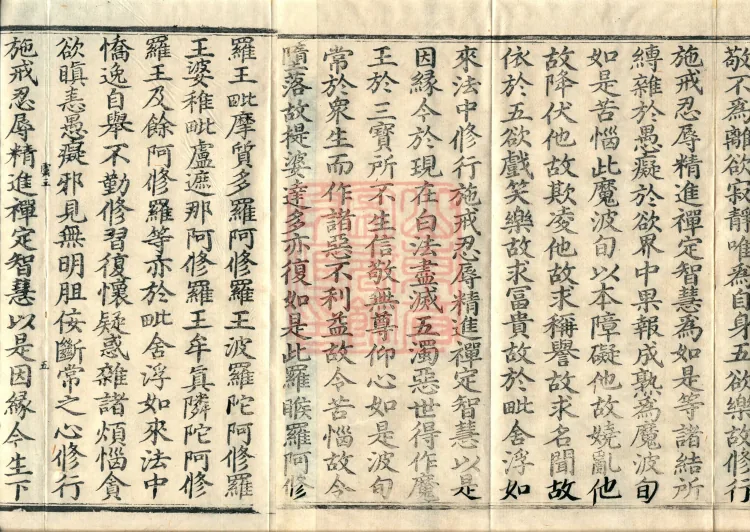 敬不為離欲寂静唯為自身五欲樂故修行
施戒忍辱精進禪定智慧為如是等諸結所
縛雜於愚癡於欲界中果報成熟為魔波旬
如是苦惱此魔波旬以本障礙他故嬈亂他
故降伏他故欺凌他故求稱譽故求名聞故
依於五欲戲笑樂故求冨貴故於毗舍浮如
來法中修行施戒忍辱精進禪定智慧以是
因緣今於現在白法盡滅五濁惡世得作魔
王於三寶所不生信敬無尊仰心如是波旬
常於衆生而作諸惡不利益故令苦惱故今
墮落故提婆達多亦復如是此羅睺羅阿修
羅王毗摩質多羅阿修羅王波羅陀阿修羅
王婆稚毗盧遮那阿修羅王牟真隣陀阿修
羅王及餘阿修羅等亦於毗舍浮如來法中
憍逸自舉不勤修習復懷疑惑雜諸煩惱貪
欲瞋恚愚癡邪見無明胆佷斷常之心修行
五
施戒忍辱精進禪定智慧以是因緣今生下